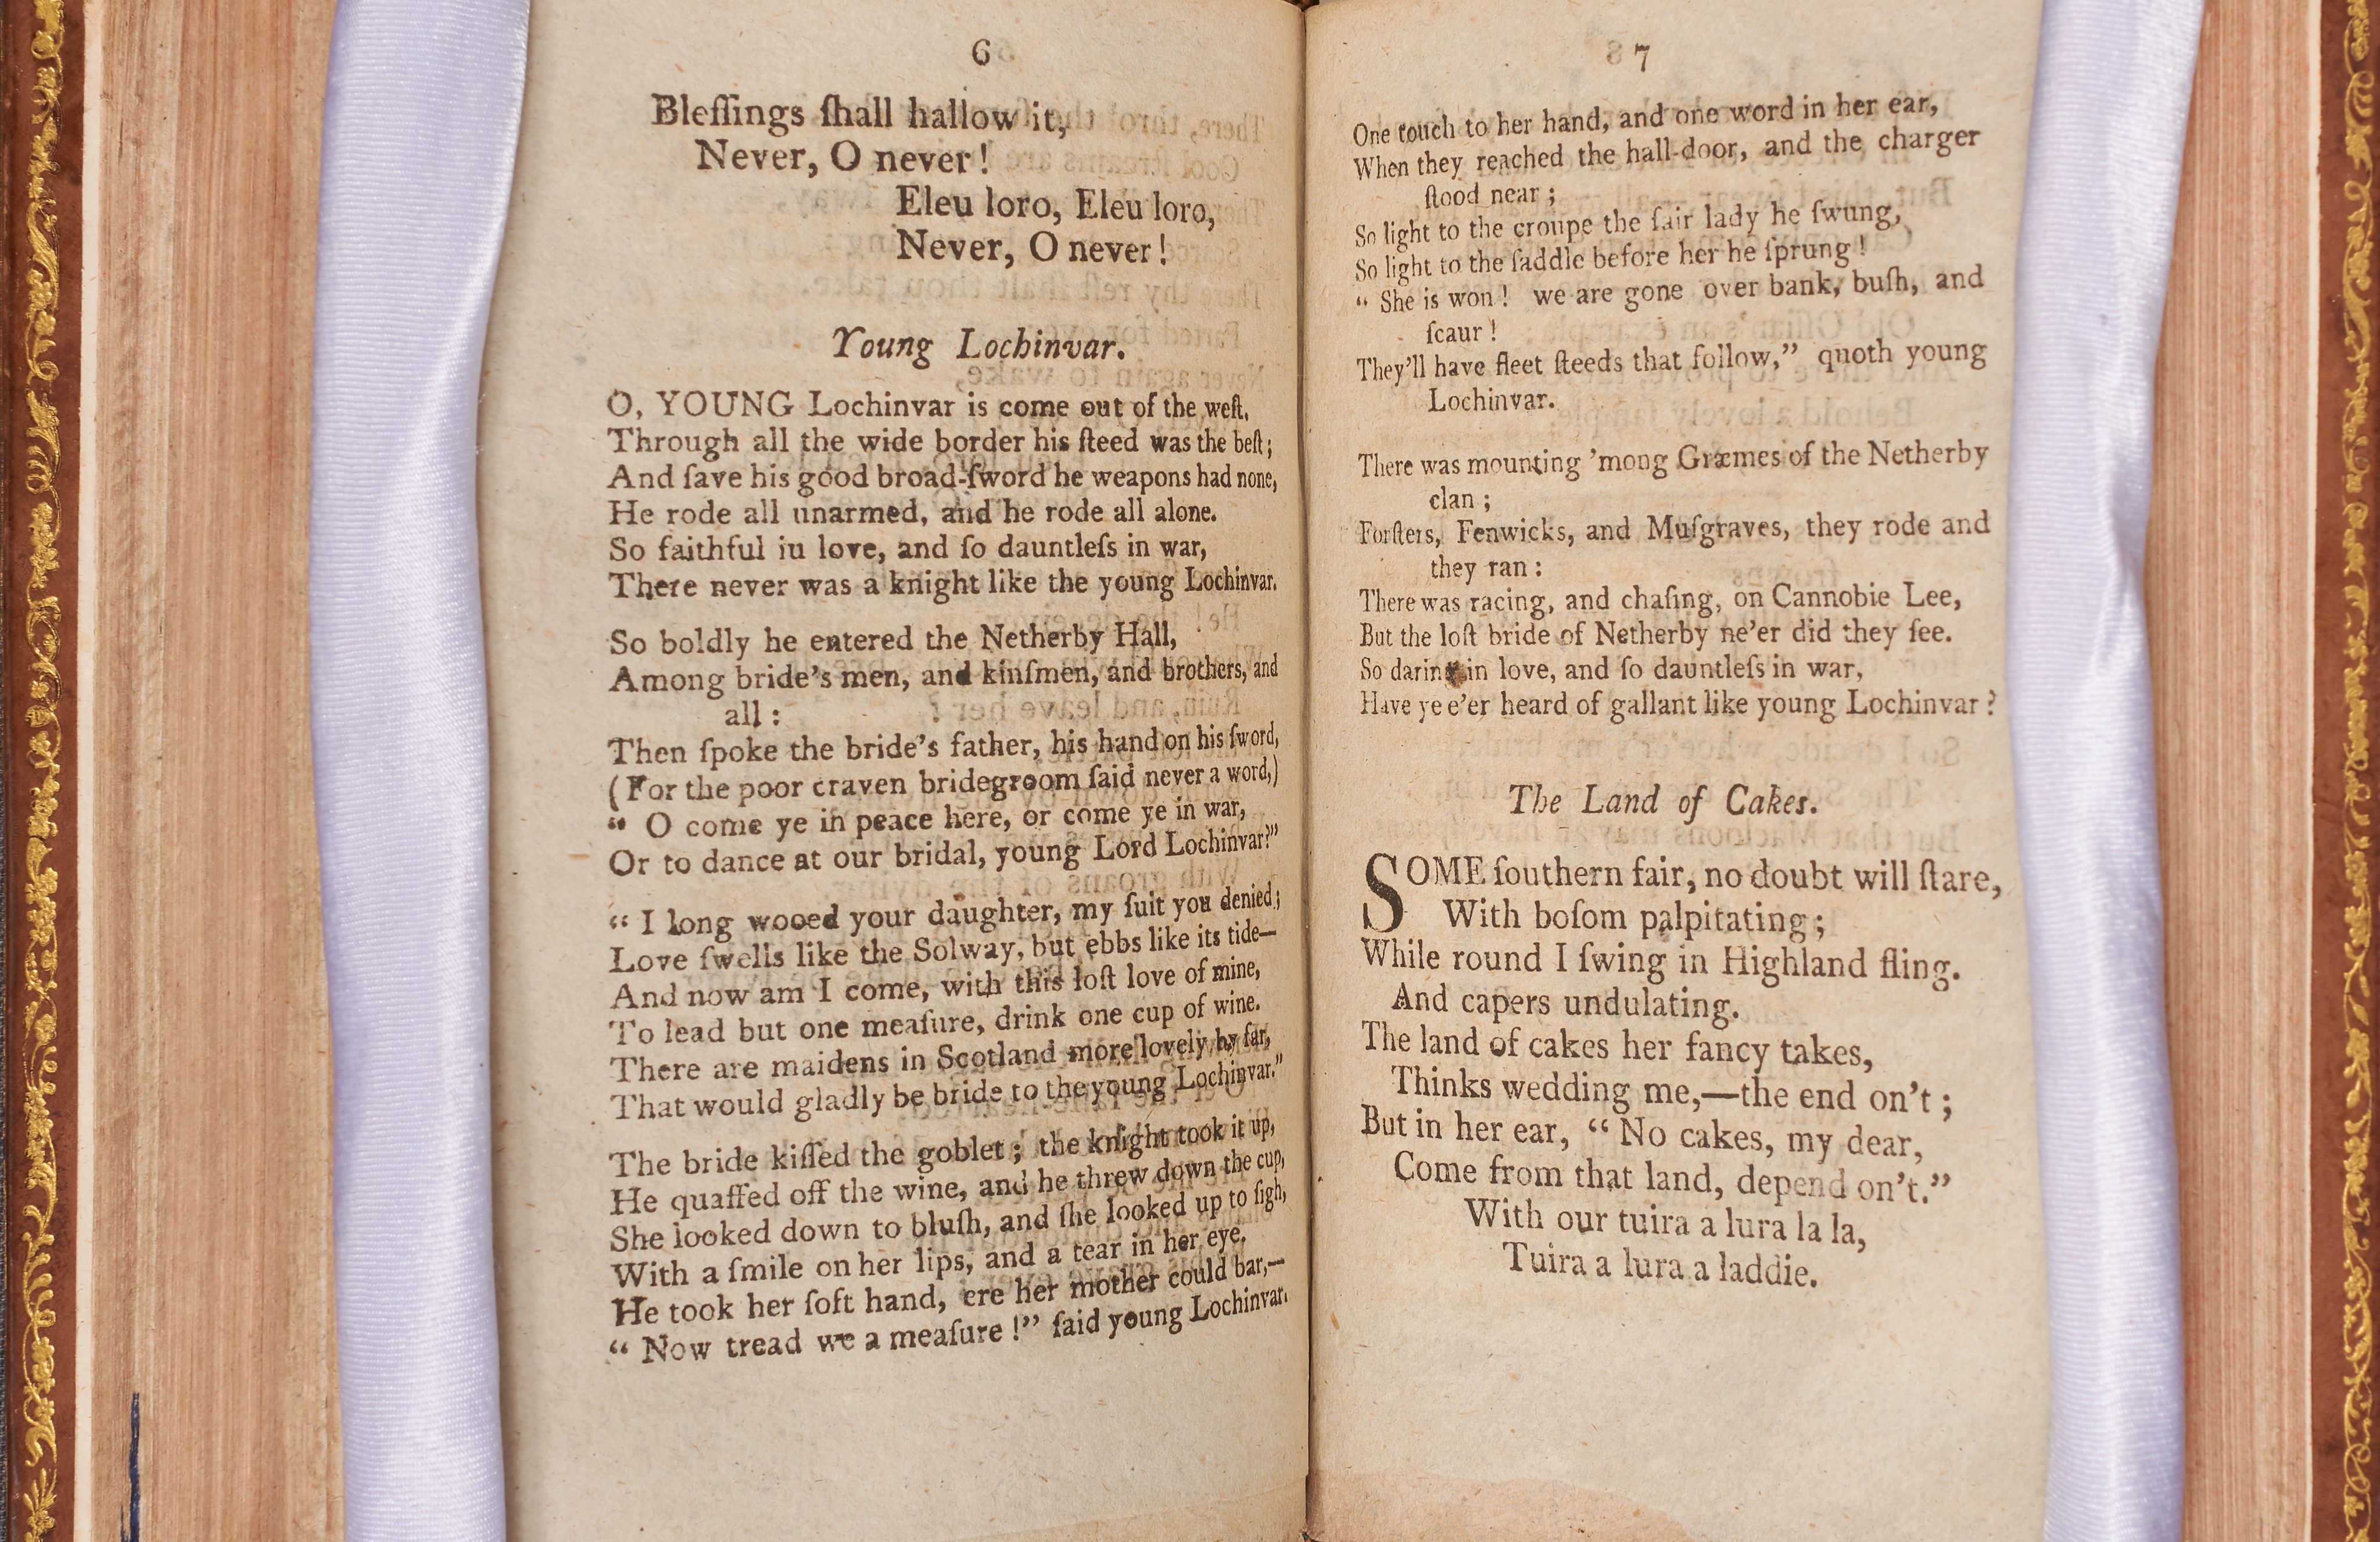 6
Bleſſings ſhall hallow it,
Never, O never!
Eleu loro, Eleu loro,
Never, O never!
Young Lochinvar.
O, YOUNG Lochinvar is come out of the weſt,
Through all the wide border his ſteed was the beſt;
And ſave his good broad-ſword he weapons had none,
He rode all unarmed, and he rode all alone.
So faithful iu love, and ſo dauntleſs in war,
There never was a knight like the young Lochinvar.
So boldly he entered the Netherby Hall,
Among bride's men, and kinſmen, and brothers, and
all:
Then ſpoke the bride's father, his hand on his ſword,
(For the poor craven bridegroom ſaid never a word,)
“ O come ye in peace here, or come ye in war,
Or to dance at our bridal, young Lord Lochinvar?”
“ I long wooed your daughter, my ſuit you denied;
Love ſwells like the Solway, but ebbs like its tide—
And now am I come, with this loſt love of mine,
To lead but one meaſure, drink one cup of wine.
There are maidens in Scotland more lovely by far,
That would gladly be bride to the young Lochinvar.”
The bride kiſſed the goblet; the knight took it up,
He quaffed off the wine, and he threw down the cup,
She looked down to bluſh, and ſhe looked up to ſigh,
With a ſmile on her lips, and a tear in her eye.
He took her ſoft hand, ere her mother could bar,—
“ Now tread we a meaſure!” ſaid young Lochinvar.
7
One touch to her hand, and one word in her ear,
When they reached the hall-door, and the charger
ſtood near;
So light to the croupe the fair lady he ſwung,
So light to the ſaddle before her he ſprung!
“ She is won! we are gone over bank, buſh, and
ſcaur!
They'll have fleet ſteeds that follow,” quoth young
Lochinvar.
There was mounting 'mong Græmes of the Netherby
clan;
Forſters, Fenwicks, and Muſgraves, they rode and
they ran:
There was racing, and chaſing, on Cannobie Lee,
But the loſt bride of Netherby ne'er did they ſee.
So daring in love, and ſo dauntleſs in war,
Have ye e'er heard of gallant like young Lochinvar?
The Land of Cakes.
SOME ſouthern fair, no doubt will ſtare,
With boſom palpitating;
While round I ſwing in Highland fling.
And capers undulating.
The land of cakes her fancy takes,
Thinks wedding me,—the end on't;
But in her ear, “ No cakes, my dear,
Come from that land, depend on't.”
With our tuira a lura la la,
Tuira a lura a laddie.